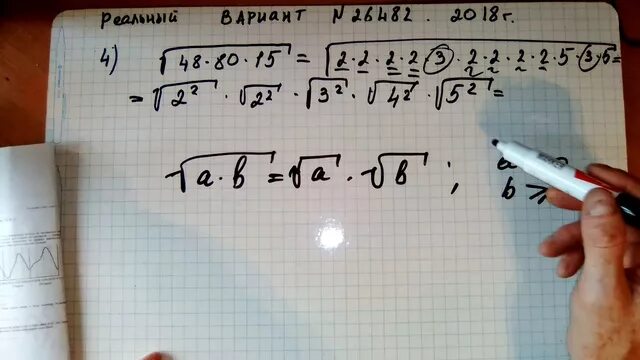 Реальный ВАРИАНТ №26482. 2018г.
4) √48·80·15 = √2·2·2·2·3·2·2·2·2·5·3·5 =
= √2² · √2² · √3² · √4² · √5² =
√a·b = √a · √b ; a
b ⩾